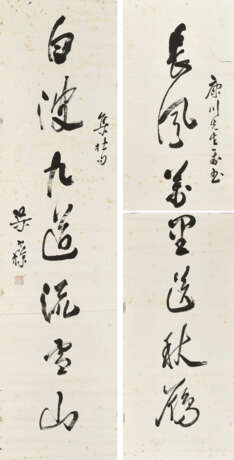 長風萬里送秋雁
康川先生
白波九道流雪山
集杜句
吳